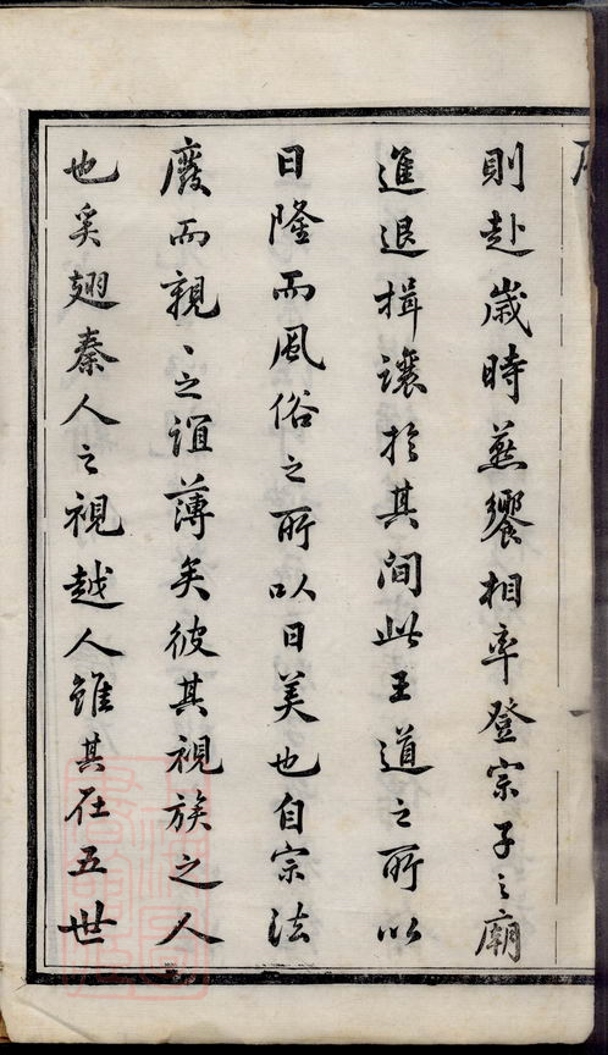 則赴歲時燕饗相率登宗子之廟
進退揖讓於其間此王道之所以
日隆而風俗之所以日美也自宗法
廢而親〻之誼薄矣彼其視族之人
也奚翅秦人之視越人雖其在五世